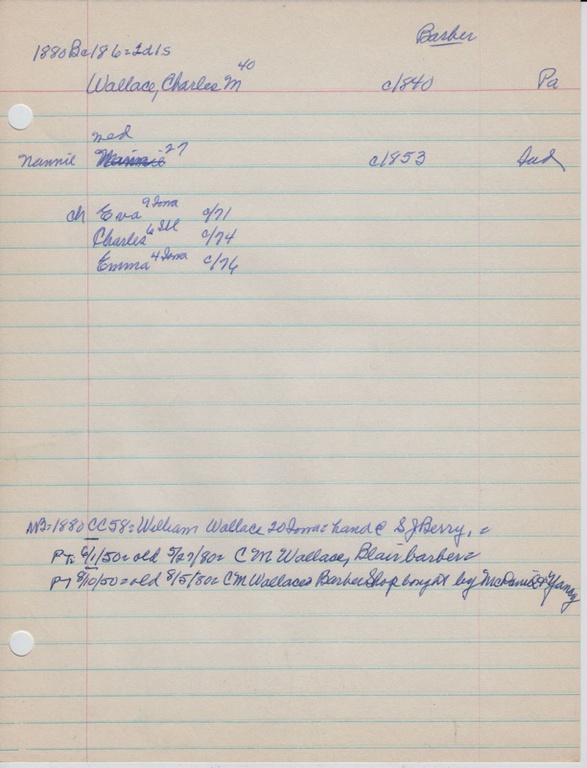 Barber
1880 Bc186=2d1s
Wallace, Charles M 40 c1840 Pa
med
Nannie 27 c1853 Ind
ch Eva 9 Iowa c/71
Charles 6 Ill c/74
Emma 4 Iowa c/76
NB=1880 CC58=William Wallace 20 Iowa=hand @ S J Berry, =
PT= 6/1/50=old 5/27/80= C M Wallace, Blair barber=
PT 8/10/50=old 8/5/80= C M Wallaces Barber Shop bought by